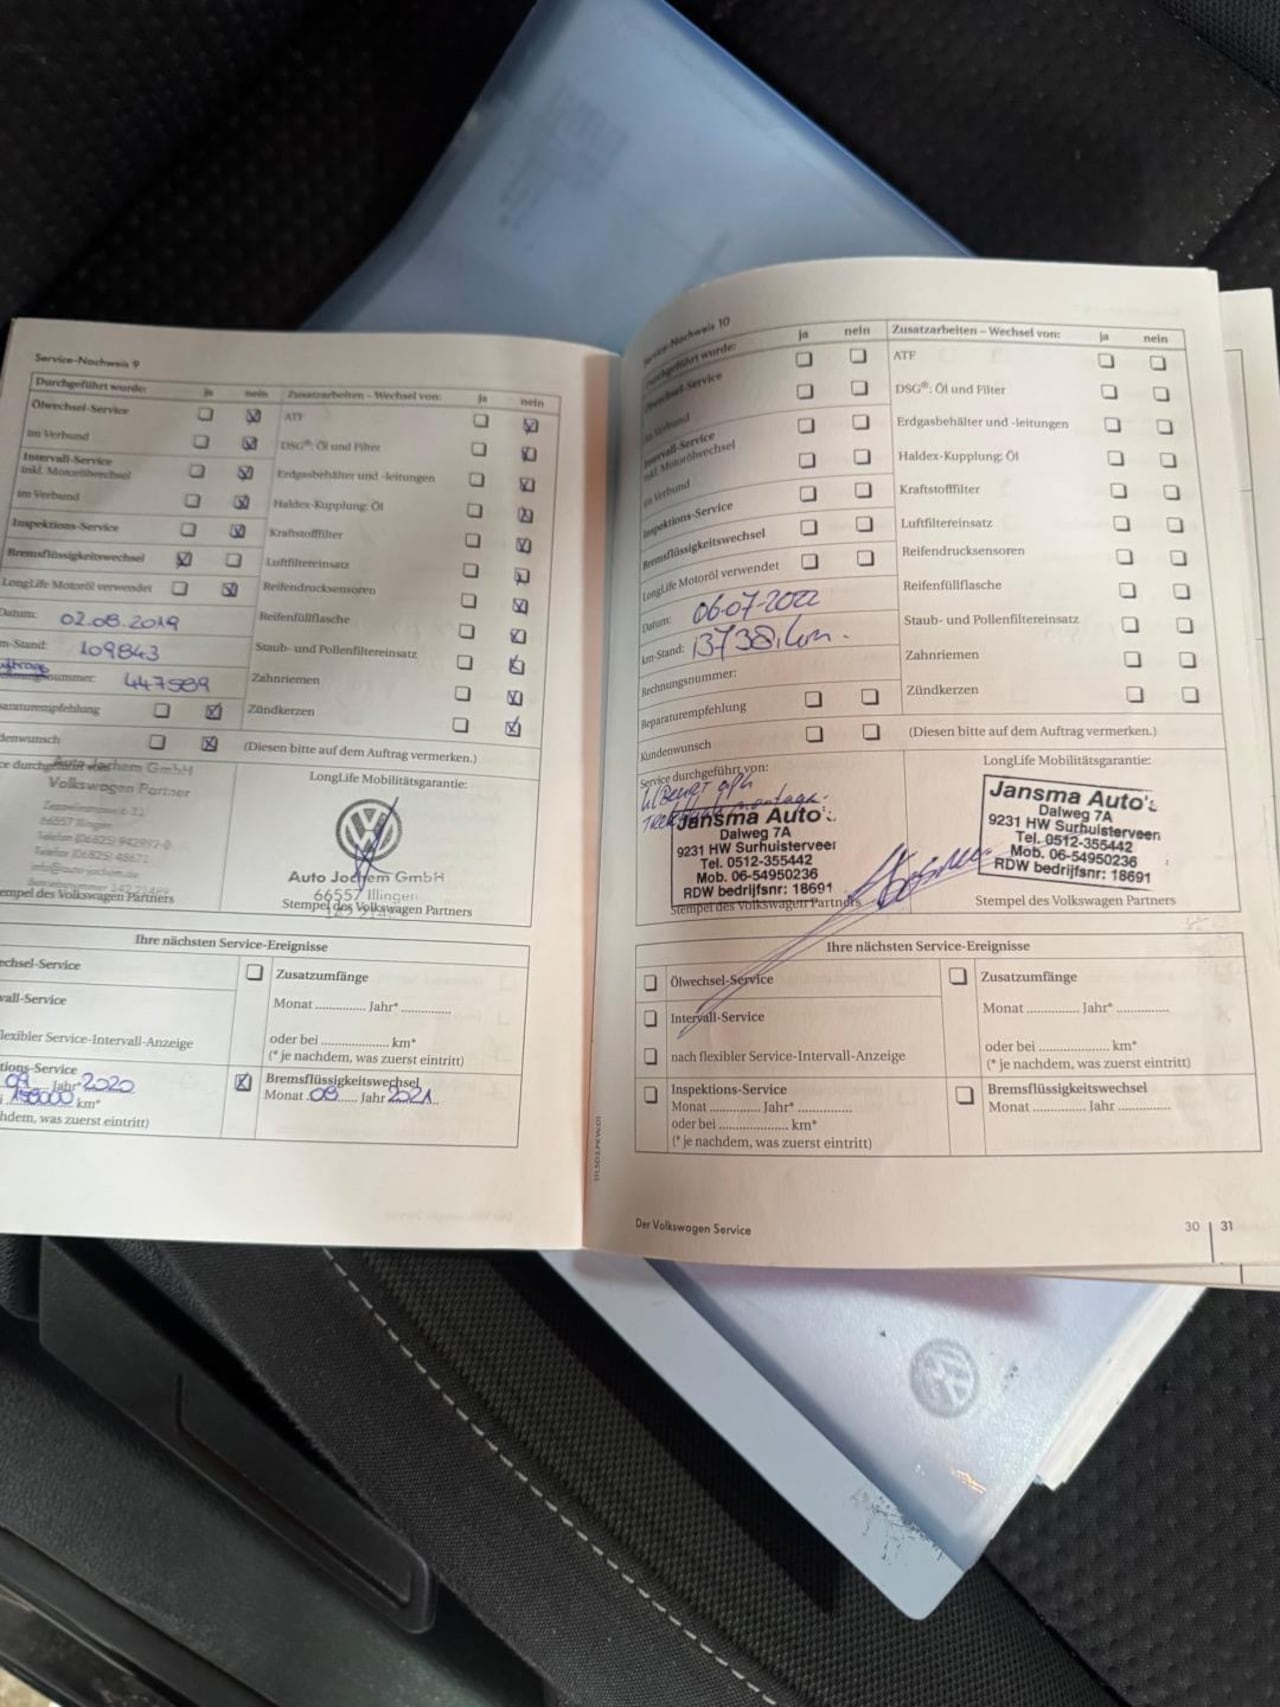 Service-Nachweis 9
Durchgeführt wurde: ja nein Zusatzarbeiten – Wechsel von: ja nein
Ölwechsel-Service ATF
im Verbund DSG®: Öl und Filter
Intervall-Service
inkl. Motorölwechsel Erdgasbehälter und -leitungen
im Verbund Haldex-Kupplung: Öl
Inspektions-Service Kraftstofffilter
Bremsflüssigkeitswechsel Luftfiltereinsatz
LongLife Motoröl verwendet Reifendrucksensoren
Datum: 02.08.2019 Reifenfüllflasche
m-Stand: 109843 Staub- und Pollenfiltereinsatz
nummer: 447589 Zahnriemen
paraturempfehlung Zündkerzen
denwunsch (Diesen bitte auf dem Auftrag vermerken.)
ce durchgeführt von: LongLife Mobilitätsgarantie:
Auto Jochem GmbH
Volkswagen Partner
66557 Illingen
Telefon (06825) 942992-0
info@auto-jochem.de
Auto Jochem GmbH
66557 Illingen
empel des Volkswagen Partners Stempel des Volkswagen Partners
Ihre nächsten Service-Ereignisse
echsel-Service Zusatzumfänge
vall-Service Monat .............. Jahr* ..............
flexibler Service-Intervall-Anzeige oder bei .................... km*
(* je nachdem, was zuerst eintritt)
tions-Service Bremsflüssigkeitswechsel
09 Jahr* 2020 Monat 08 Jahr 2021
km*
hdem, was zuerst eintritt)
Service-Nachweis 10
Durchgeführt wurde: ja nein Zusatzarbeiten – Wechsel von: ja nein
Ölwechsel-Service ATF
im Verbund DSG®: Öl und Filter
Intervall-Service
inkl. Motorölwechsel Erdgasbehälter und -leitungen
im Verbund Haldex-Kupplung: Öl
Inspektions-Service Kraftstofffilter
Bremsflüssigkeitswechsel Luftfiltereinsatz
LongLife Motoröl verwendet Reifendrucksensoren
Datum: 06-07-2022 Reifenfüllflasche
km-Stand: Staub- und Pollenfiltereinsatz
Rechnungsnummer: Zahnriemen
Reparaturempfehlung Zündkerzen
Kundenwunsch (Diesen bitte auf dem Auftrag vermerken.)
Service durchgeführt von: LongLife Mobilitätsgarantie:
Jansma Auto's
Dalweg 7A
9231 HW Surhuisterveen
Tel. 0512-355442
Mob. 06-54950236
RDW bedrijfsnr: 18691
Jansma Auto's
Dalweg 7A
9231 HW Surhuisterveen
Tel. 0512-355442
Mob. 06-54950236
RDW bedrijfsnr: 18691
Stempel des Volkswagen Partners Stempel des Volkswagen Partners
Ihre nächsten Service-Ereignisse
Ölwechsel-Service Zusatzumfänge
Intervall-Service Monat .............. Jahr* ..............
nach flexibler Service-Intervall-Anzeige oder bei .................... km*
(* je nachdem, was zuerst eintritt)
Inspektions-Service Bremsflüssigkeitswechsel
Monat .............. Jahr* .............. Monat .............. Jahr ..............
oder bei .................... km*
(* je nachdem, was zuerst eintritt)
Der Volkswagen Service 30 | 31